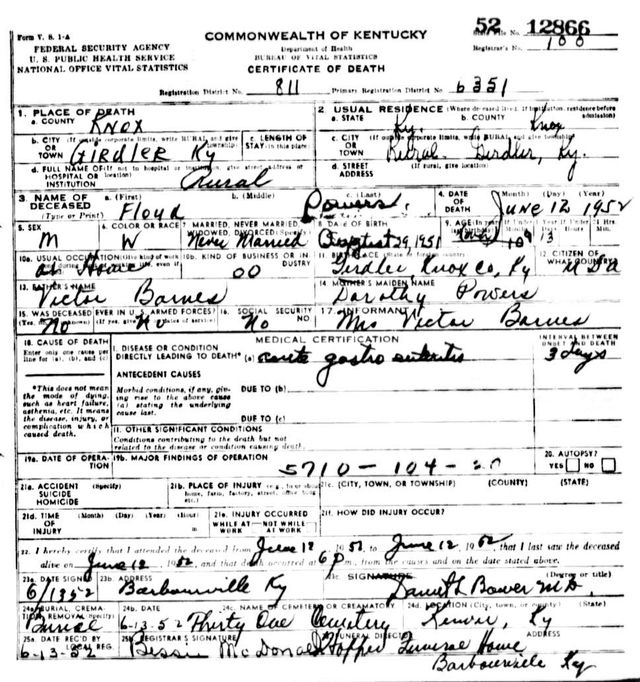 Form V. S. 1-A
COMMONWEALTH OF KENTUCKY
52 12866
FEDERAL SECURITY AGENCY
Department of Health
Registrar's No. 100
U. S. PUBLIC HEALTH SERVICE
BUREAU OF VITAL STATISTICS
NATIONAL OFFICE VITAL STATISTICS
CERTIFICATE OF DEATH
Registration District No. 811 Primary Registration District No. 6351
1. PLACE OF DEATH
2. USUAL RESIDENCE (Where deceased lived. If institution, residence before admission)
a. COUNTY KNOX
a. STATE Ky. b. COUNTY Knox
b. CITY OR TOWN GIRDLER Ky
c. LENGTH OF STAY (in this place)
c. CITY OR TOWN Rural Girdler, Ky.
d. FULL NAME OF HOSPITAL OR INSTITUTION Rural
d. STREET ADDRESS (If rural, give location)
3. NAME OF DECEASED (Type or Print) a. (First) Floyd b. (Middle) c. (Last) Powers
4. DATE OF DEATH (Month) (Day) (Year) June 12 1952
5. SEX M
6. COLOR OR RACE W
7. MARRIED, NEVER MARRIED, WIDOWED, DIVORCED Never Married
8. DATE OF BIRTH August 29, 1951
9. AGE
10a. USUAL OCCUPATION at Home
10b. KIND OF BUSINESS OR INDUSTRY 00
11. BIRTHPLACE Girdler, Knox Co, Ky
12. CITIZEN OF WHAT COUNTRY? USA
13. FATHER'S NAME Victor Barnes
14. MOTHER'S MAIDEN NAME Dorothy Powers
15. WAS DECEASED EVER IN U.S. ARMED FORCES? No No
16. SOCIAL SECURITY NO. No
17. INFORMANT Mrs Victor Barnes
18. CAUSE OF DEATH
Enter only one cause per line for (a), (b), and (c)
MEDICAL CERTIFICATION
INTERVAL BETWEEN ONSET AND DEATH
I. DISEASE OR CONDITION DIRECTLY LEADING TO DEATH* (a) acute gastro enteritis 3 days
*This does not mean the mode of dying, such as heart failure, asthenia, etc. It means the disease, injury, or complication which caused death.
ANTECEDENT CAUSES
Morbid conditions, if any, giving rise to the above cause (a) stating the underlying cause last.
DUE TO (b)
DUE TO (c)
II. OTHER SIGNIFICANT CONDITIONS
Conditions contributing to the death but not related to the disease or condition causing death.
19a. DATE OF OPERATION
19b. MAJOR FINDINGS OF OPERATION
5710-104-
20. AUTOPSY? YES NO
21a. ACCIDENT SUICIDE HOMICIDE (Specify)
21b. PLACE OF INJURY
21c. (CITY, TOWN, OR TOWNSHIP) (COUNTY) (STATE)
21d. TIME OF INJURY (Month) (Day) (Year) (Hour)
21e. INJURY OCCURRED WHILE AT WORK NOT WHILE AT WORK
21f. HOW DID INJURY OCCUR?
22. I hereby certify that I attended the deceased from June 12 1952, to June 12, 1952, that I last saw the deceased
alive on June 12 1952, and that death occurred at 6 p m., from the causes and on the date stated above.
23a. DATE SIGNED 6/13 52
23b. ADDRESS Barbourville Ky
23c. SIGNATURE (Degree or title) L Bower M.D.
24a. BURIAL, CREMATION, REMOVAL (Specify) Burial
24b. DATE 6-13-52
24c. NAME OF CEMETERY OR CREMATORY Thirty One Cemetery
24d. LOCATION (City, town, or county) (State) Ky
25a. DATE REC'D BY LOCAL REG. 6-13-52
25b. REGISTRAR'S SIGNATURE Bessie McDonald
FUNERAL DIRECTOR ADDRESS Hopper Funeral Home
Barbourville Ky